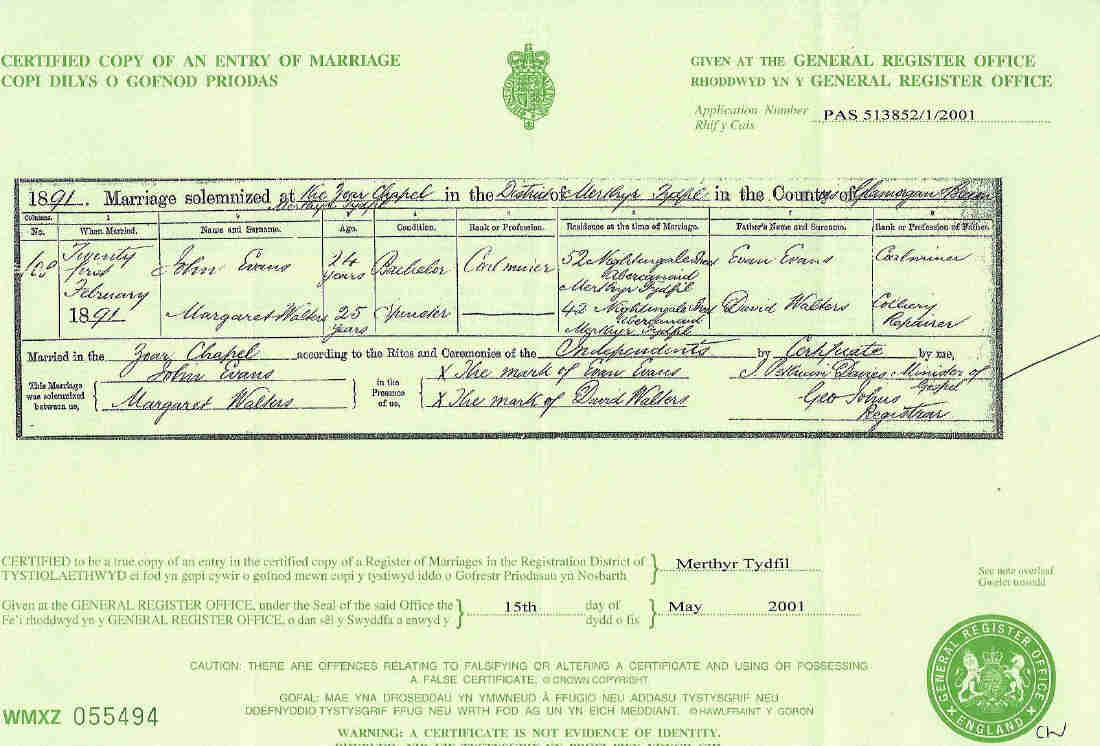 CERTIFIED COPY OF AN ENTRY OF MARRIAGE
COPI DILYS O GOFNOD PRIODAS
GIVEN AT THE GENERAL REGISTER OFFICE
RHODDWYD YN Y GENERAL REGISTER OFFICE
Application Number PAS 513852/1/2001
Rhif y Cais
1891. Marriage solemnized at the Zoar Chapel in the District of Merthyr Tydfil in the Counties of Glamorgan
Merthyr Tydfil
Columns. 1 2 3 4 5 6 7 8
No. When Married. Name and Surname. Age. Condition. Rank or Profession. Residence at the time of Marriage. Father's Name and Surname. Rank or Profession of Father.
Twenty first February 1891
John Evans 24 years Bachelor Coal miner 52 Nightingale Street Abercanaid Merthyr Tydfil Evan Evans Coal miner
Margaret Walters 25 years Spinster 42 Nightingale Street Abercanaid Merthyr Tydfil David Walters Colliery Repairer
Married in the Zoar Chapel according to the Rites and Ceremonies of the Independents by Certificate by me,
This Marriage was solemnized between us, John Evans in the Presence of us, X The mark of Evan Evans Minister of Gospel
Margaret Walters X The mark of David Walters Geo Johns Registrar
CERTIFIED to be a true copy of an entry in the certified copy of a Register of Marriages in the Registration District of Merthyr Tydfil
TYSTIOLAETHWYD ei fod yn gopi cywir o gofnod mewn copi y tystiwyd iddo o Gofrestr Priodasau yn Nosbarth
See note overleaf
Gweler trosodd
Given at the GENERAL REGISTER OFFICE, under the Seal of the said Office the 15th day of May 2001
Fe'i rhoddwyd yn y GENERAL REGISTER OFFICE, o dan sêl y Swyddfa a enwyd y dydd o fis
GENERAL REGISTER OFFICE
ENGLAND
CAUTION: THERE ARE OFFENCES RELATING TO FALSIFYING OR ALTERING A CERTIFICATE AND USING OR POSSESSING
A FALSE CERTIFICATE. © CROWN COPYRIGHT
GOFAL: MAE YNA DROSEDDAU YN YMWNEUD Â FFUGIO NEU ADDASU TYSTYSGRIF NEU
DDEFNYDDIO TYSTYSGRIF FFUG NEU WRTH FOD AG UN YN EICH MEDDIANT. © HAWLFRAINT Y GORON
WMXZ 055494
WARNING: A CERTIFICATE IS NOT EVIDENCE OF IDENTITY.